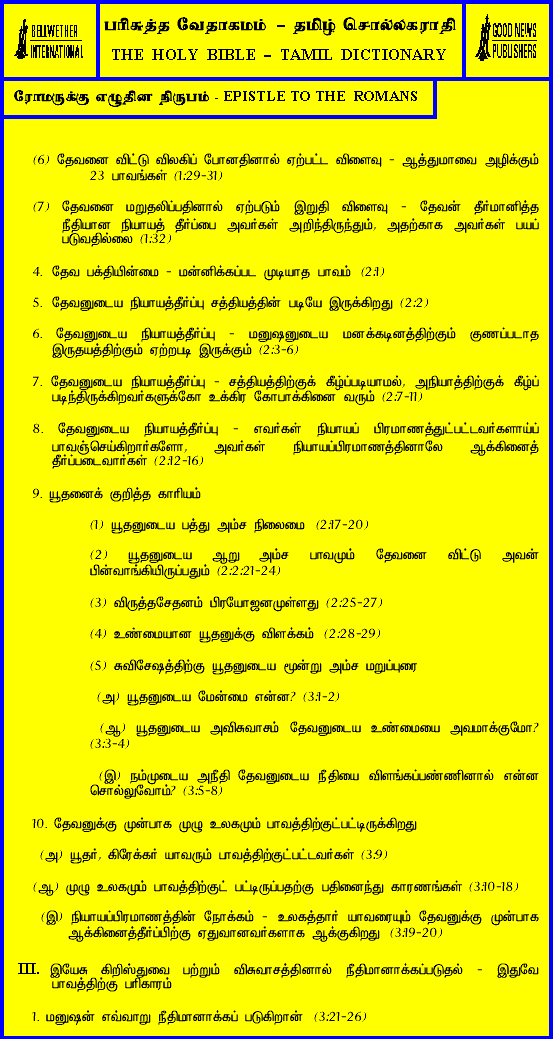 BELLWETHER
INTERNATIONAL
பரிசுத்த வேதாகமம் – தமிழ் சொல்லகராதி
THE HOLY BIBLE – TAMIL DICTIONARY
GOOD NEWS
PUBLISHERS
ரோமருக்கு எழுதின நிருபம் - EPISTLE TO THE ROMANS
(6) தேவனை விட்டு விலகிப் போனதினால் ஏற்பட்ட விளைவு - ஆத்துமாவை அழிக்கும்
23 பாவங்கள் (1:29-31)
(7) தேவனை மறுதலிப்பதினால் ஏற்படும் இறுதி விளைவு - தேவன் தீர்மானித்த
நீதியான நியாயத் தீர்ப்பை அவர்கள் அறிந்திருந்தும், அதற்காக அவர்கள் பயப்
படுவதில்லை (1:32)
4. தேவ பக்தியின்மை - மன்னிக்கப்பட முடியாத பாவம் (2:1)
5. தேவனுடைய நியாயத்தீர்ப்பு சத்தியத்தின் படியே இருக்கிறது (2:2)
6. தேவனுடைய நியாயத்தீர்ப்பு - மனுஷனுடைய மனக்கடினத்திற்கும் குணப்படாத
இருதயத்திற்கும் ஏற்றபடி இருக்கும் (2:3-6)
7. தேவனுடைய நியாயத்தீர்ப்பு - சத்தியத்திற்குக் கீழ்ப்படியாமல், அநியாத்திற்குக் கீழ்ப்
படிந்திருக்கிறவர்களுக்கோ உக்கிர கோபாக்கினை வரும் (2:7-11)
8. தேவனுடைய நியாயத்தீர்ப்பு - எவர்கள் நியாயப் பிரமாணத்துட்பட்டவர்களாய்ப்
பாவஞ்செய்கிறார்களோ, அவர்கள் நியாயப்பிரமாணத்தினாலே ஆக்கினைத்
தீர்ப்படைவார்கள் (2:12-16)
9. யூதனைக் குறித்த காரியம்
(1) யூதனுடைய பத்து அம்ச நிலைமை (2:17-20)
(2) யூதனுடைய ஆறு அம்ச பாவமும் தேவனை விட்டு அவன்
பின்வாங்கியிருப்பதும் (2:2:21-24)
(3) விருத்தசேதனம் பிரயோஜனமுள்ளது (2:25-27)
(4) உண்மையான யூதனுக்கு விளக்கம் (2:28-29)
(5) சுவிசேஷத்திற்கு யூதனுடைய மூன்று அம்ச மறுப்புரை
(அ) யூதனுடைய மேன்மை என்ன? (3:1-2)
(ஆ) யூதனுடைய அவிசுவாசம் தேவனுடைய உண்மையை அவமாக்குமோ?
(3:3-4)
(இ) நம்முடைய அநீதி தேவனுடைய நீதியை விளங்கப்பண்ணினால் என்ன
சொல்லுவோம்? (3:5-8)
10. தேவனுக்கு முன்பாக முழு உலகமும் பாவத்திற்குட்பட்டிருக்கிறது
(அ) யூதர், கிரேக்கர் யாவரும் பாவத்திற்குட்பட்டவர்கள் (3:9)
(ஆ) முழு உலகமும் பாவத்திற்குட் பட்டிருப்பதற்கு பதினைந்து காரணங்கள் (3:10-18)
(இ) நியாயப்பிரமாணத்தின் நோக்கம் - உலகத்தார் யாவரையும் தேவனுக்கு முன்பாக
ஆக்கினைத்தீர்ப்பிற்கு ஏதுவானவர்களாக ஆக்குகிறது (3:19-20)
III. இயேசு கிறிஸ்துவை பற்றும் விசுவாசத்தினால் நீதிமானாக்கப்படுதல் - இதுவே
பாவத்திற்கு பரிகாரம்
1. மனுஷன் எவ்வாறு நீதிமானாக்கப் படுகிறான் (3:21-26)